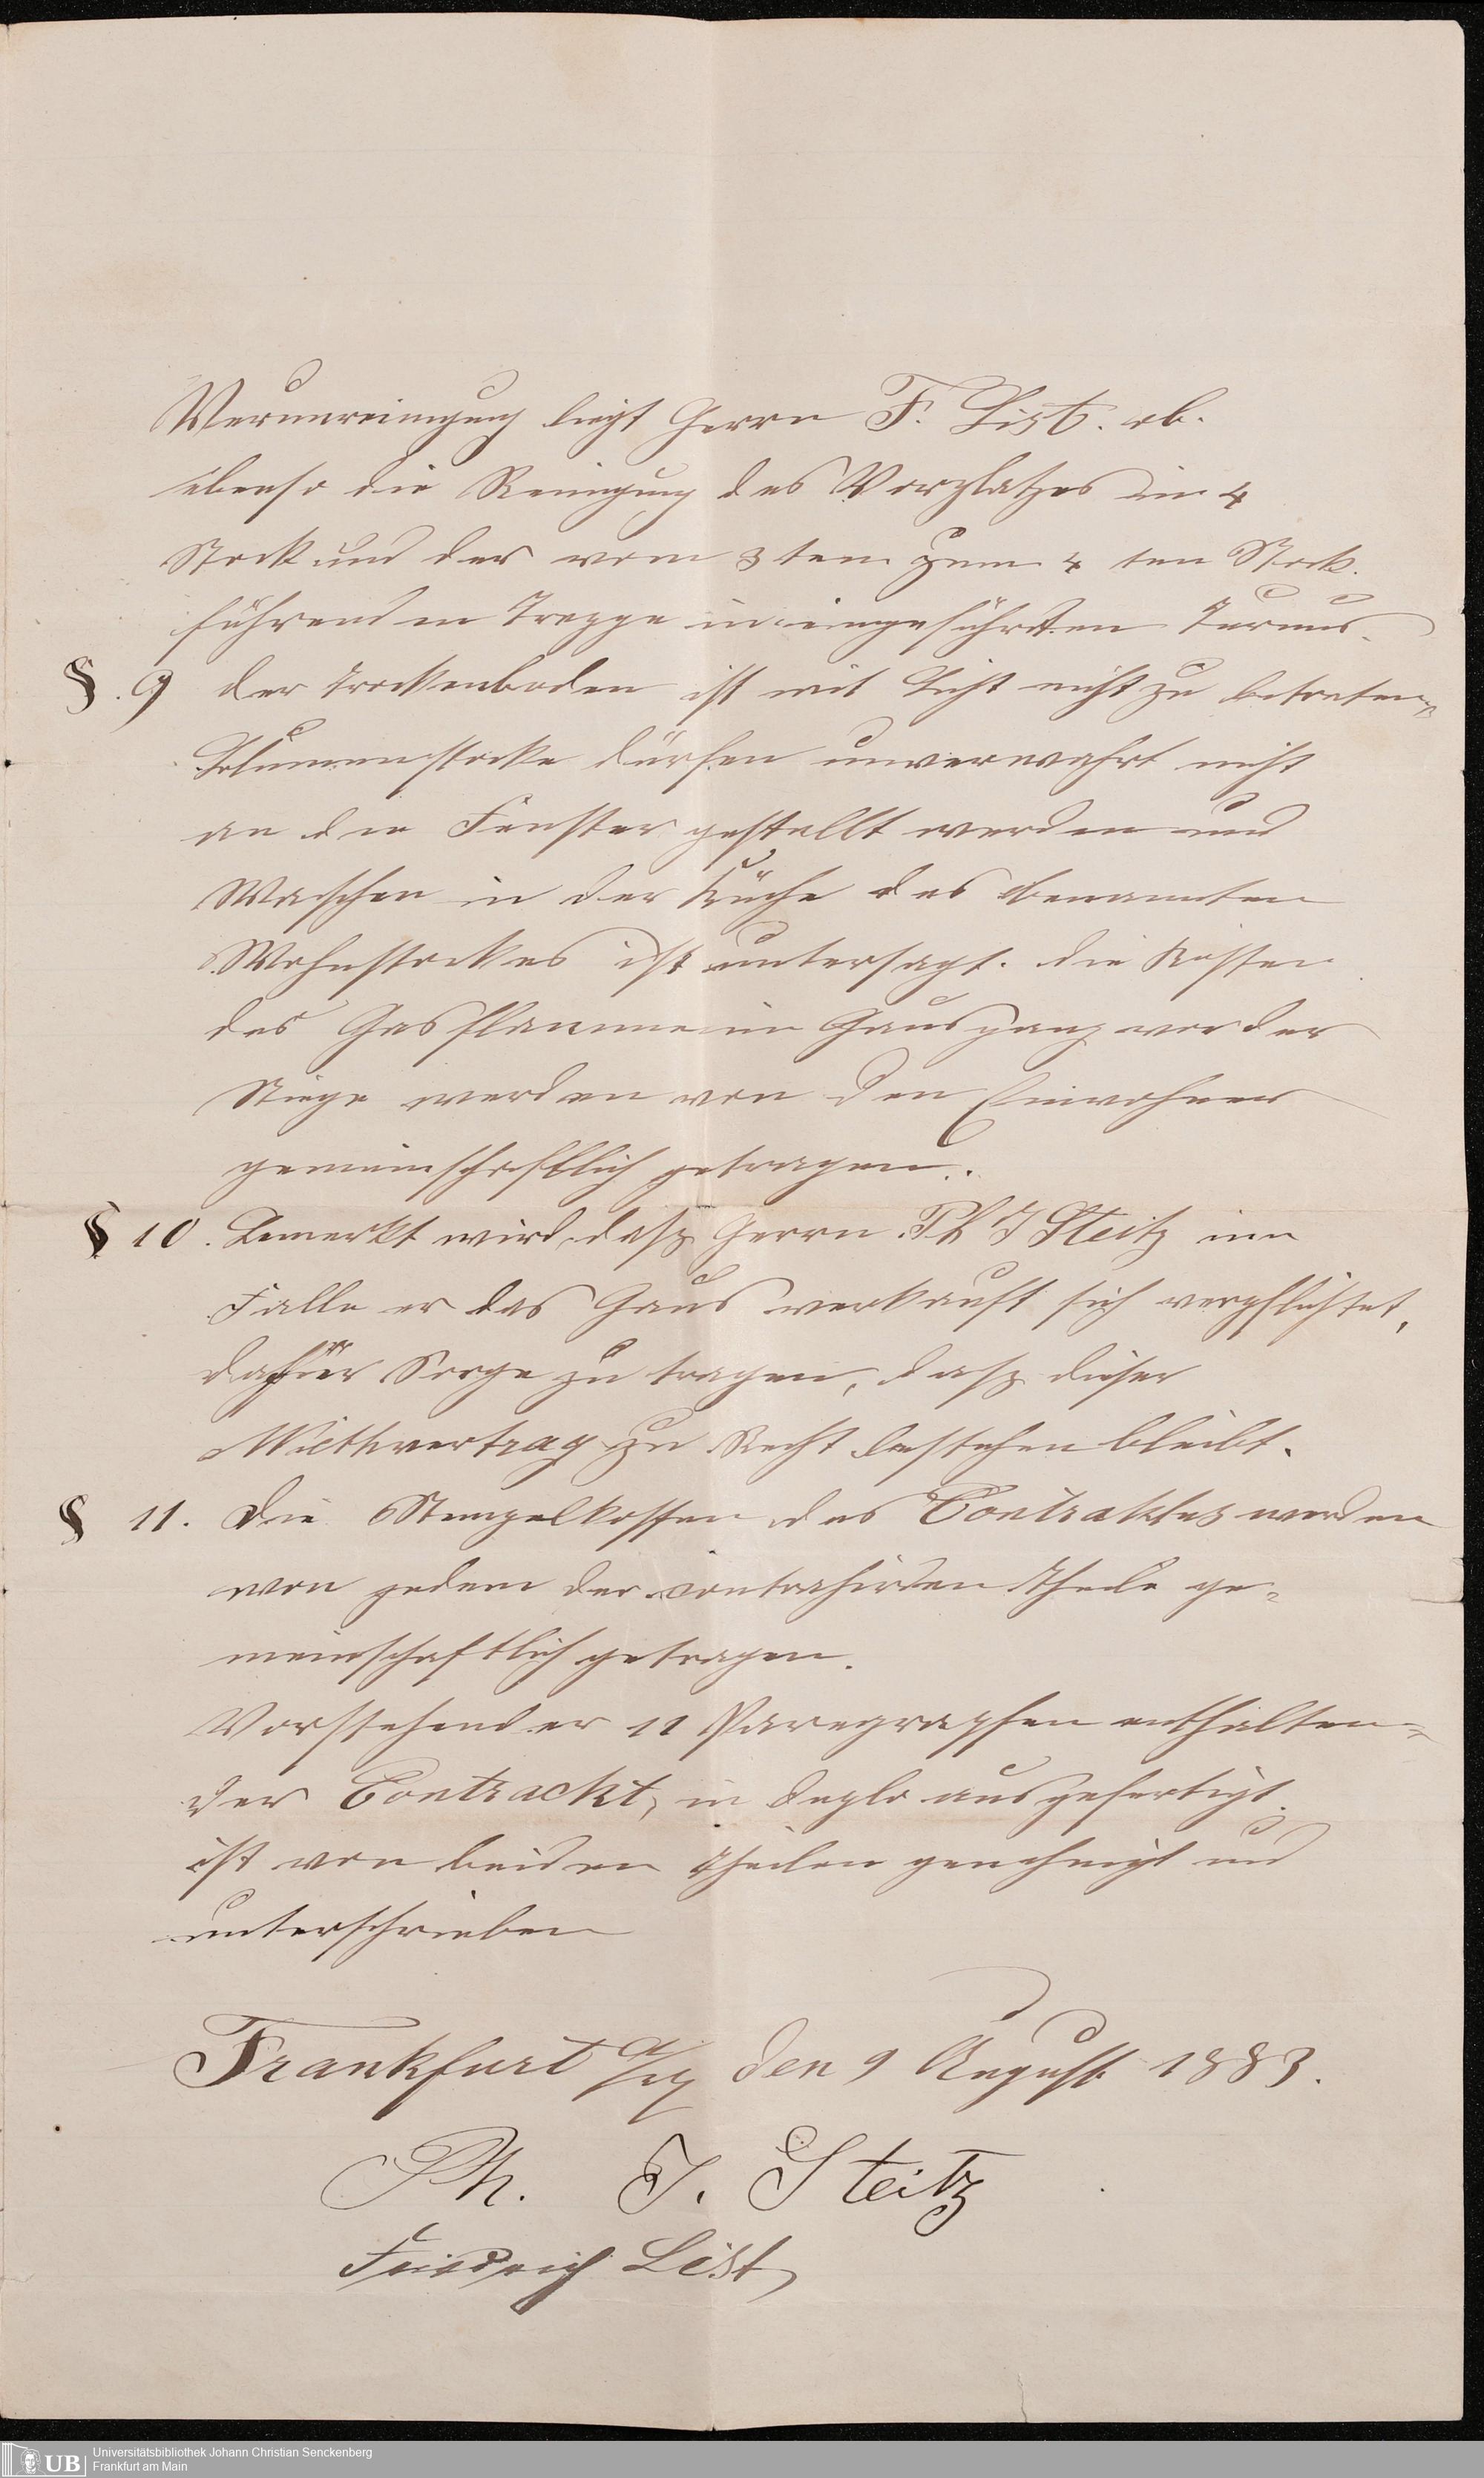 Verunreinigung liegt Herrn F. List. ob.
ebenso die Reinigung des Vorplatzes im 4
Stock und der vom 3 tem zum 4 ten Stock.
führenden Treppe in eingeführten Turnus.
§. 9 der Trockenboden ist mit Licht nicht zu betreten,
Blumenstocke dürfen unverwahrt nicht
an die Fenster gestellt werden und
Waschen in der Küche des benannten
Wohnstockes ist untersagt. die Kosten
des Gasflamme im Hausgang vor der
Stiege werden von den Einwohner
gemeinschaftlich getragen.
§ 10. Bemerkt wird, dass Herrn Ph J Steitz im
Falle er das Haus verkauft sich verpflichtet,
dafür Sorge zu tragen, dass dieser
Miethvertrag zu Recht bestehen bleibt.
§ 11. Die Stempelkosten des Contraktes werden
von jedem der contrahirden Theile ge-
meinschaftlich getragen.
Vorstehender 11 Paregraphen enthalten-
der Contrackt, in duplo ausgefertigt.
ist von beiden Theilen genehmigt und
unterschrieben
Frankfurt a/M den 9 August 1883.
Ph. J. Steitz
Friedrich List
UB Universitätsbibliothek Johann Christian Senckenberg
Frankfurt am Main